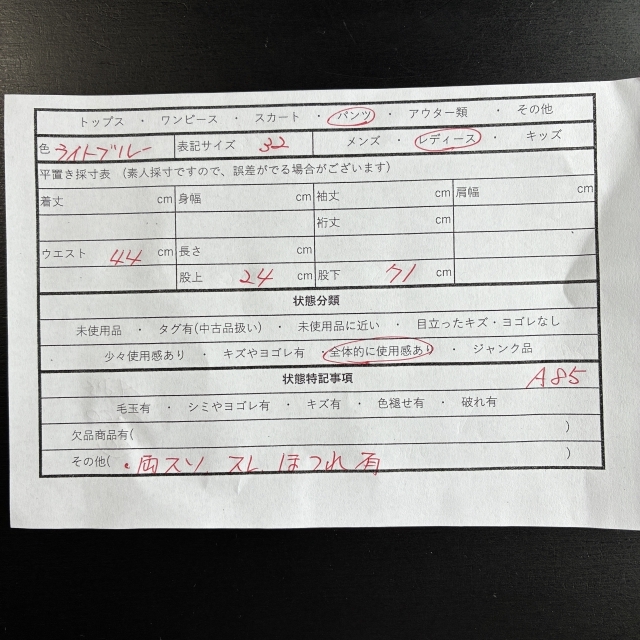 トップス ・ ワンピース ・ スカート ・ パンツ ・ アウター類 ・ その他
色 ライトブルー 表記サイズ 32 メンズ ・ レディース ・ キッズ
平置き採寸表 (素人採寸ですので、誤差がでる場合がございます)
着丈 cm 身幅 cm 袖丈 cm 肩幅 cm
裄丈 cm
ウエスト 44 cm 長さ cm
股上 24 cm 股下 71 cm
状態分類
未使用品 ・ タグ有(中古品扱い) ・ 未使用品に近い ・ 目立ったキズ・ヨゴレなし
少々使用感あり ・ キズやヨゴレ有 ・ 全体的に使用感あり ・ ジャンク品
状態特記事項 A85
毛玉有 ・ シミやヨゴレ有 ・ キズ有 ・ 色褪せ有 ・ 破れ有
欠品商品有( )
その他( ・両スソ スレ ほつれ 有 )